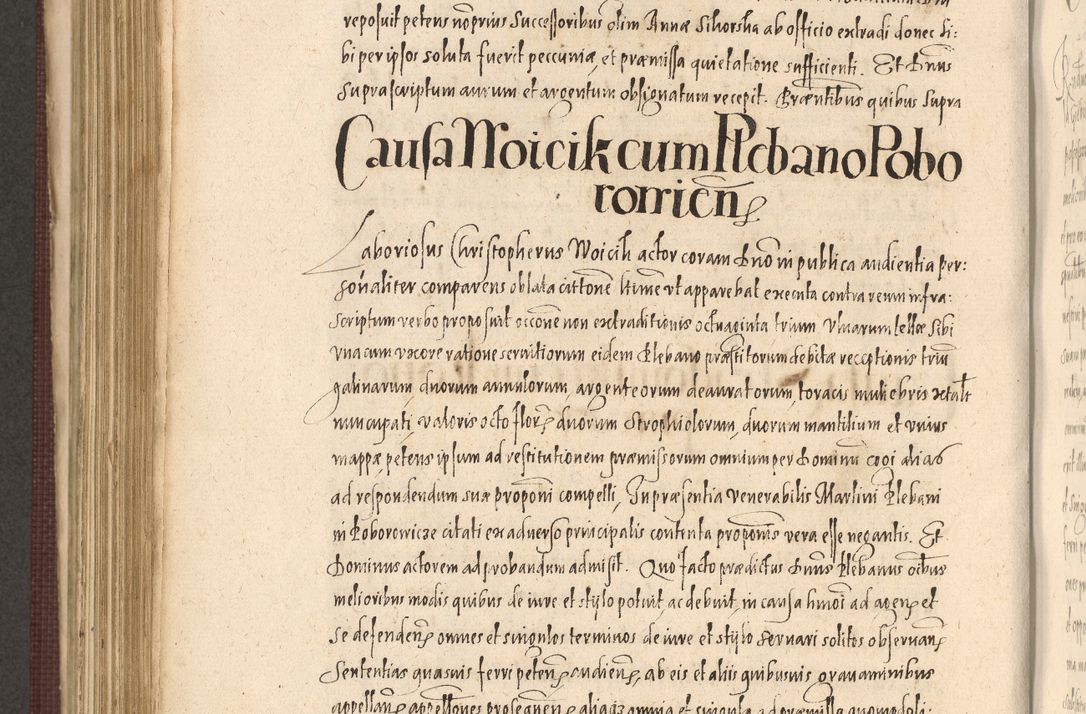 reposuit petens non prius Successoribus olim Annæ Sikorska ab officio extradi donec si:
bi per ipsos soluta fuerit peccuniæ, et præmissa quietatione sufficienti. Et Dnus
Suprascriptum aurum et argentum obsignatum recepit. Præntibus quibus Supra
Causa Woicik cum Plebano Pobo
rowicen
Laboriosus Christopherus Woicik actor coram Dno in publica audientia per:
sonaliter comparens oblata cittone ltime vt apparebat executa contra reum infra:
scriptum verbo proposuit occone non extraditionis octuaginta trium Vlnarum tellæ Sibi
vna cum vxore ratione seruitiorum eidem Plebano præstitorum debitæ receptionis trium
galinarum, duorum annulorum, argenteorum deauratorum, toracis muliebris
nuncupati, valoris octo flor, duorum Strophiolorum, duorum mantilium et vnius
mappæ, petens ipsum ad restitutionem præmissorum omnium per Dominum cogi alias
ad respondendum suæ proponi compelli, In præsentia venerabilis Martini Plebani
in Poborowicze citati ex aduerso principalis contenta proponis vera esse negantis. Et
Dominus actorem ad probandum admisit. Quo facto prædictus Dnus Plebanus oibus
melioribus modis quibus de iure et stylo potuit ac debuit, in causa hmoi ad agen et
se defenden omnes et singulos terminos de iure et stylo seruari solitos obseruan
Sententias quasuis ferri peten, audien, ab eis et aliis quibusuis grauaminibus
appellan appellones prosequen aliaqz omnia et singula